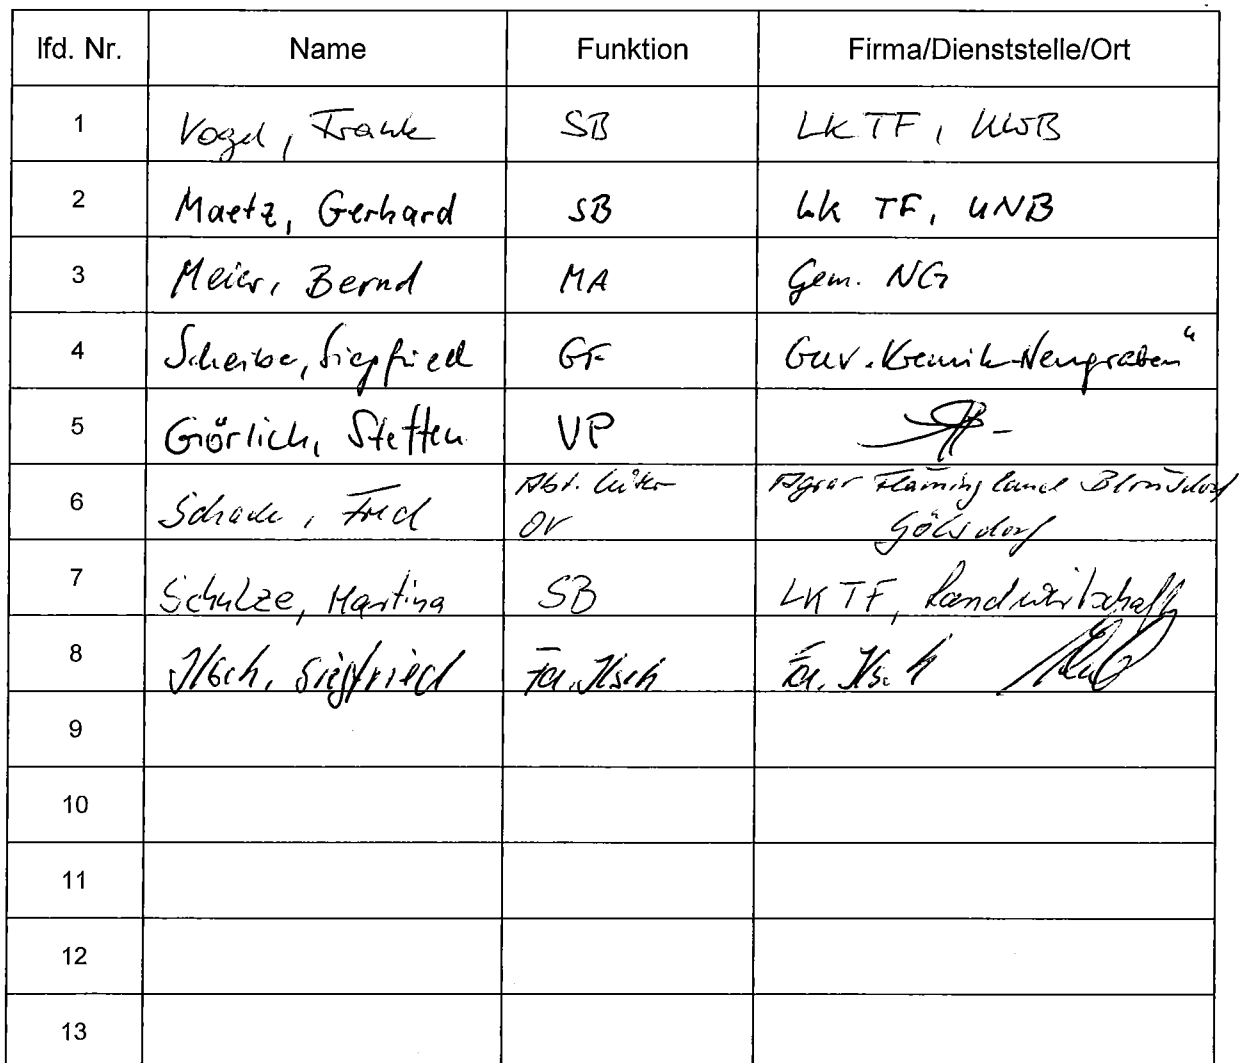 lfd. Nr. Name Funktion Firma/Dienststelle/Ort
1 Vogel, Frank SB LK TF, UWB
2 Maetz, Gerhard SB LK TF, UNB
3 Meier, Bernd MA Gem. NG
4 Scheibe, Siegfried GF GUV.
5 Görlich, Steffen VP
6 Schade, Fred Abt. leiter Agrar Flämingland Blönsdorf
OV Gölsdorf
7 Schulze, Martina SB LK TF, Landwirtschaft
8 Ilsch, Siegfried Fa. Ilsch Fa. Ilsch
9
10
11
12
13